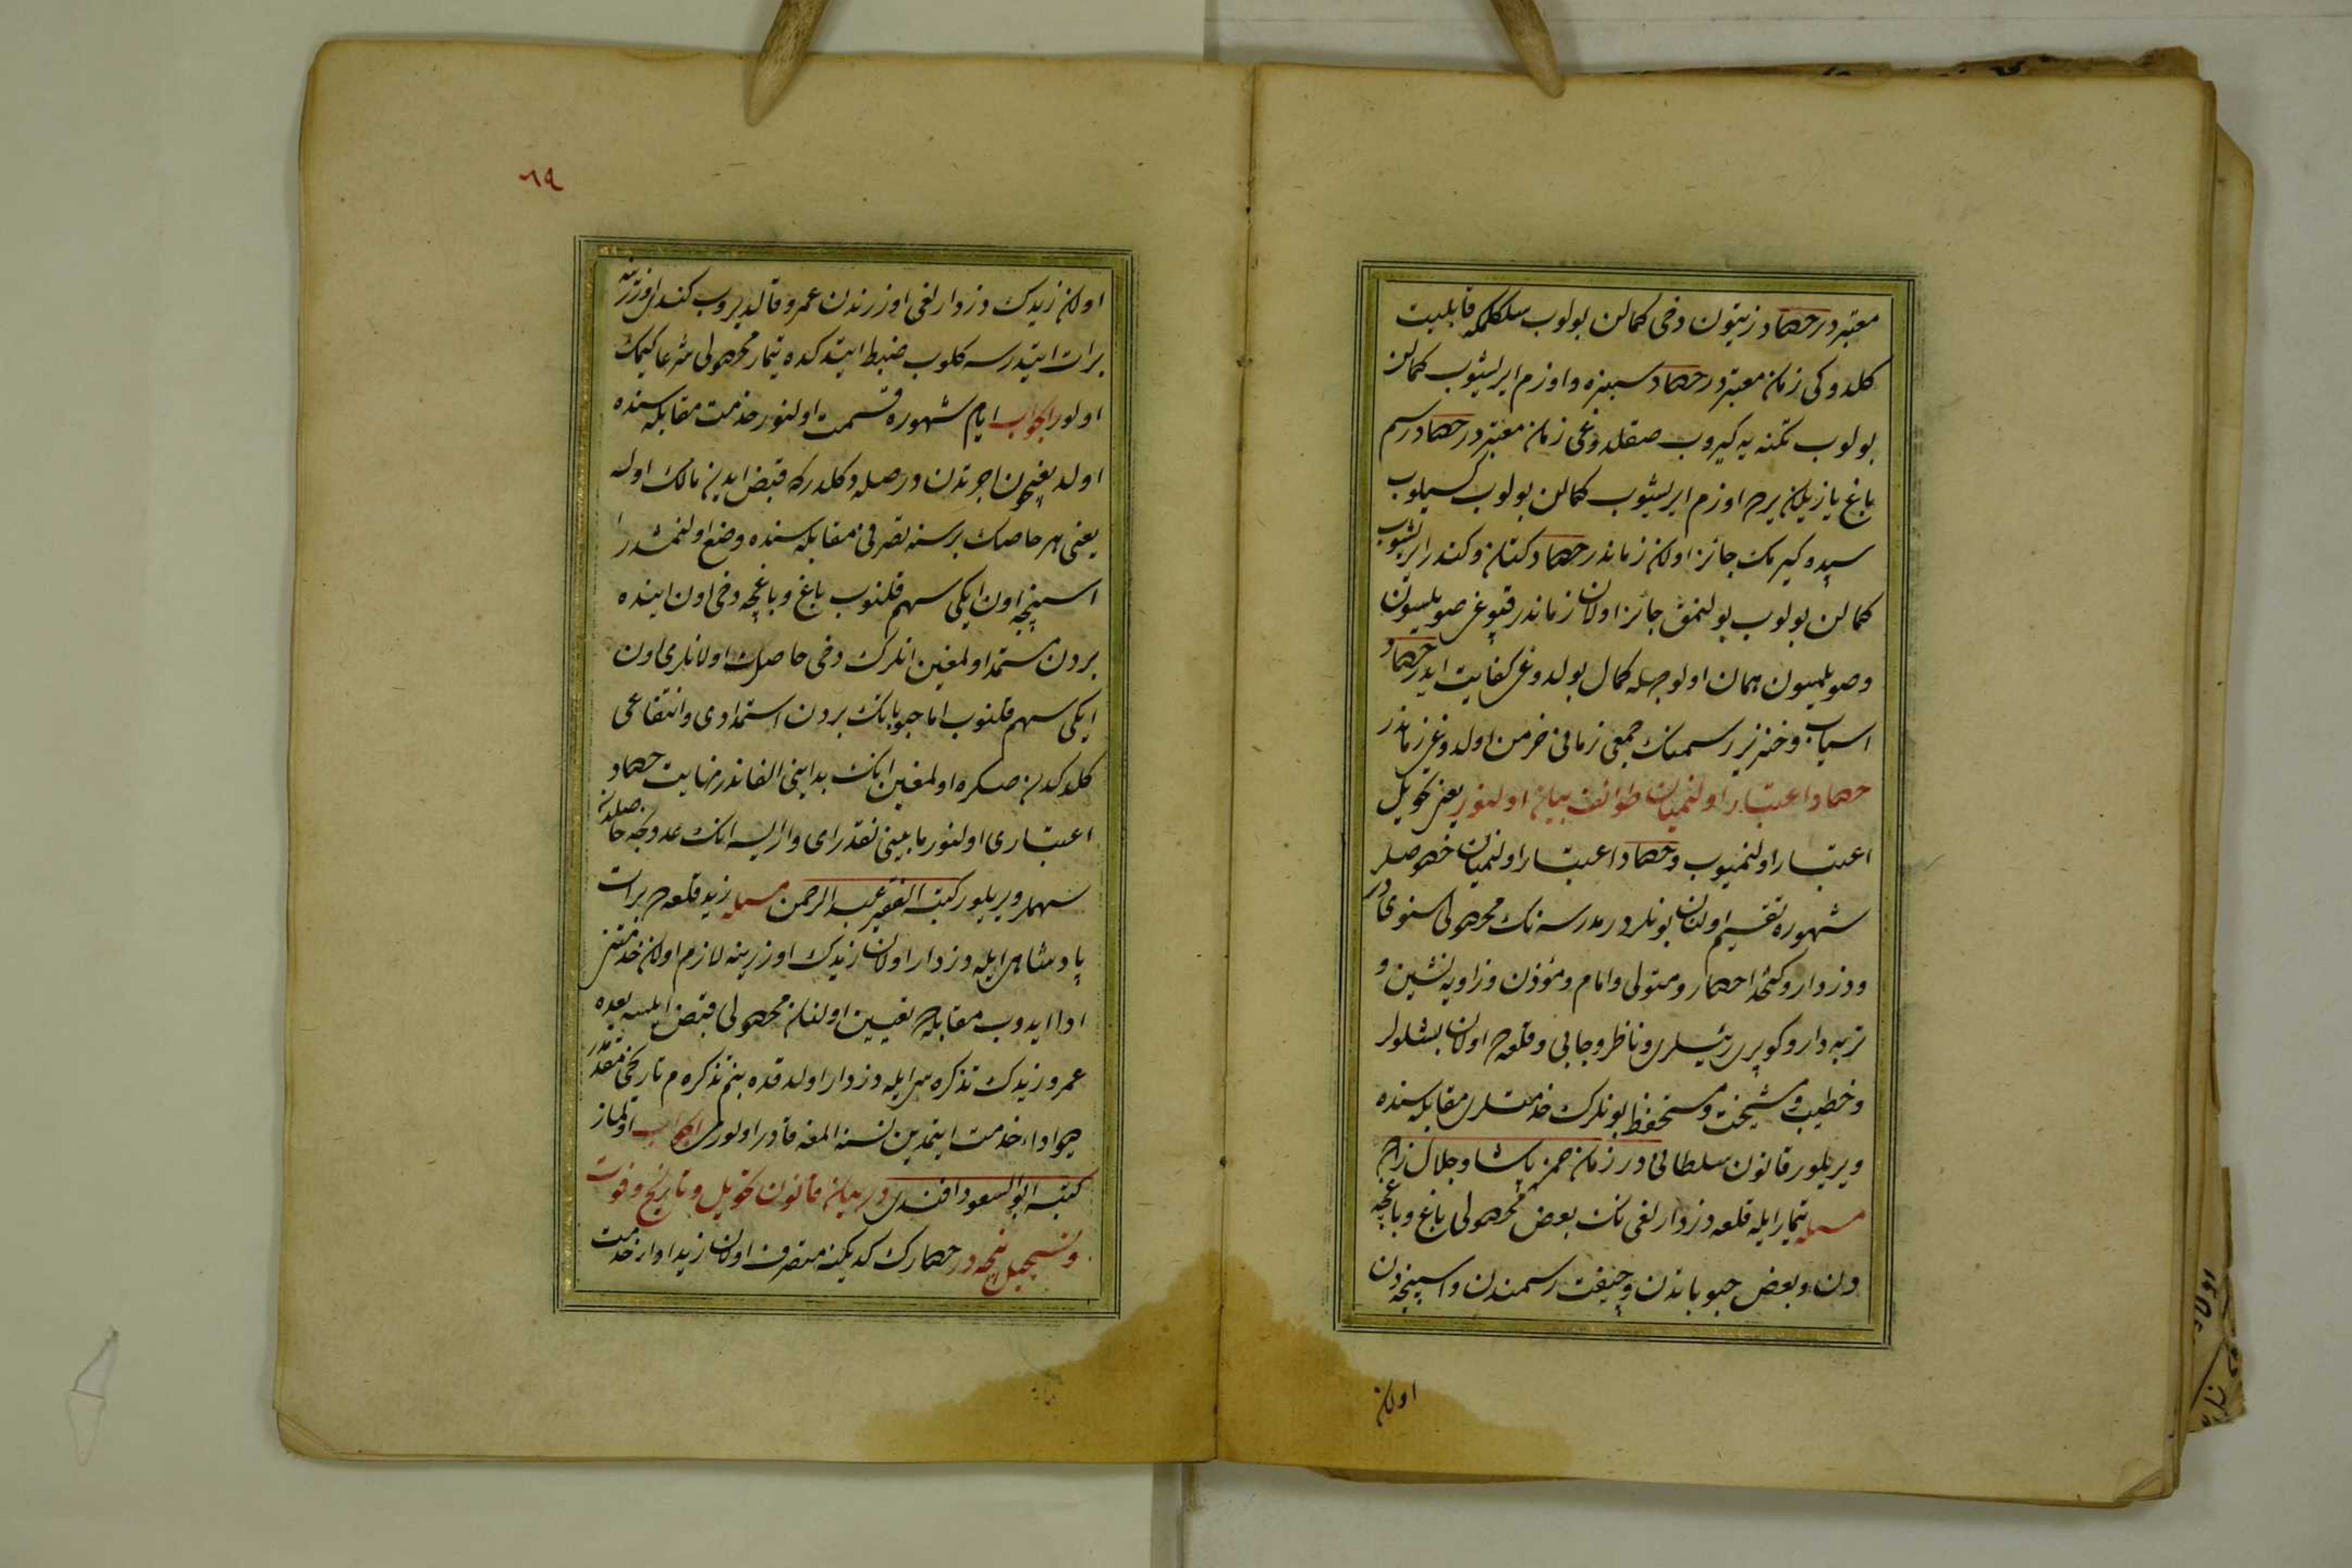 معتبردر حصاد زیتون دخی کمالن بولوب سلکلمکه قابلیت
کلدوکی زمان معتبردر حصاد سبزه و اوزم ایریشوب کمالن
بولوب تکنه یه کیروب صقلدوغی زمان معتبردر حصاد رسم
باغ یازیلان یرده اوزم ایریشوب کمالن بولوب کسیلوب
سپده کیرمک جائز اولان زماندر حصاد کتان و کندر ایریشوب
کمالن بولوب یولنمق جائز اولان زماندر قیوغی صویلسون
و صویلمسون همان اولوجهله کمال بولدوغی کفایت ایدر حصاد
اسیاب و خنزیر رسمنک جمعی زمانی خرمن اولدوغی زماندر
حصاد اعتبار اولنمیان طوائف بیان اولنور یعنی تحویل
اعتبار اولنمیوب و حصاد اعتبار اولنمیان خصوصلر
شهوره تقسیم اولنان بونلردر مدرسه نک محصولی سنوی در
و دزدار و کتخدا حصار و متولی و امام و مؤذن و زاویه نشین و
تربه دار و کوپری رئیسلری و ناظر و جابی و قلعه ده اولان بشلولر
و خطیب و مشیخت و مستحفظ بونلرک خدمتلری مقابله سنده
ویریلور قانون سلطانی در زمان حمزه پاشا و جلال زاده
مسله تیمار ایله قلعه دزدارلغی نک بعض محصولی باغ و باغچه
دن و بعض حبوباتدن و چیفت رسمندن و اسپنجه دن
اولان
٦٩
اولان زیدک دزدارلغی اوزرندن عمرو قالدیروب کندو اوزرینه
برات ایتدرسه کلوب ضبط ایتدکده تیمار محصولی شرعا کیمک
اولور الجواب ایام شهوره قسمت اولنور خدمت مقابله سنده
اولدیغیچون اجرتدن در صله دکلدرکه قبض ایدین مالک اوله
یعنی هر حاصلک بر سنه تصرفی مقابله سنده وضع اولنمشدر
اسپنجه اون ایکی سهم قلنوب باغ و باغچه دخی اون اینده
بردن مستمد اولمغین انلرک دخی حاصلی اولانلری اون
ایکی سهم قلنوب اما حبوباتک بردن استمدادی و انتفاعی
کلدکدن صکره اولمغین انک بدایتی الفاندر نهایت حصاد
اعتباری اولنور مابینی نقدر ای وار ایسه انک عددنجه حاصلدن
سهملر ویریلور کتبه الفقیر عبد الرحمن مسله زید قلعه ده برات
پادشاهی ایله دزدار اولان زیدک اوزرینه لازم اولان خدمتنی
ادا ایدوب مقابله ده تعیین اولنان محصولی قبض ایلسه بعده
عمرو زیدک تذکره سی ایله دزدار اولدقده بنم تذکره م تاریخی مقدمدر
دیو اداء خدمت ایتمدین نسنه المغه قادر اولورمی الجواب اولماز
کتبه ابو السعود افندی در بیان قانون تحویل و تاریخ و فوت
و تسجیل نیجه در حصارک کدیکنه متصرف اولان زید اداء خدمت